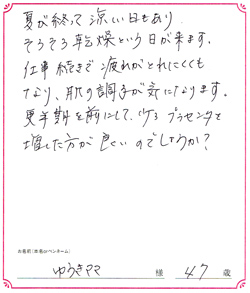 夏が終って涼しい日もあり
そろそろ乾燥という日が来ます。
仕事続きで疲れがとれにくくも
なり、肌の調子が気になります。
更年期を前にして、プラセンタを
増した方が良いのでしょうか?
お名前(本名orペンネーム)
ゆうきママ 様 47 歳